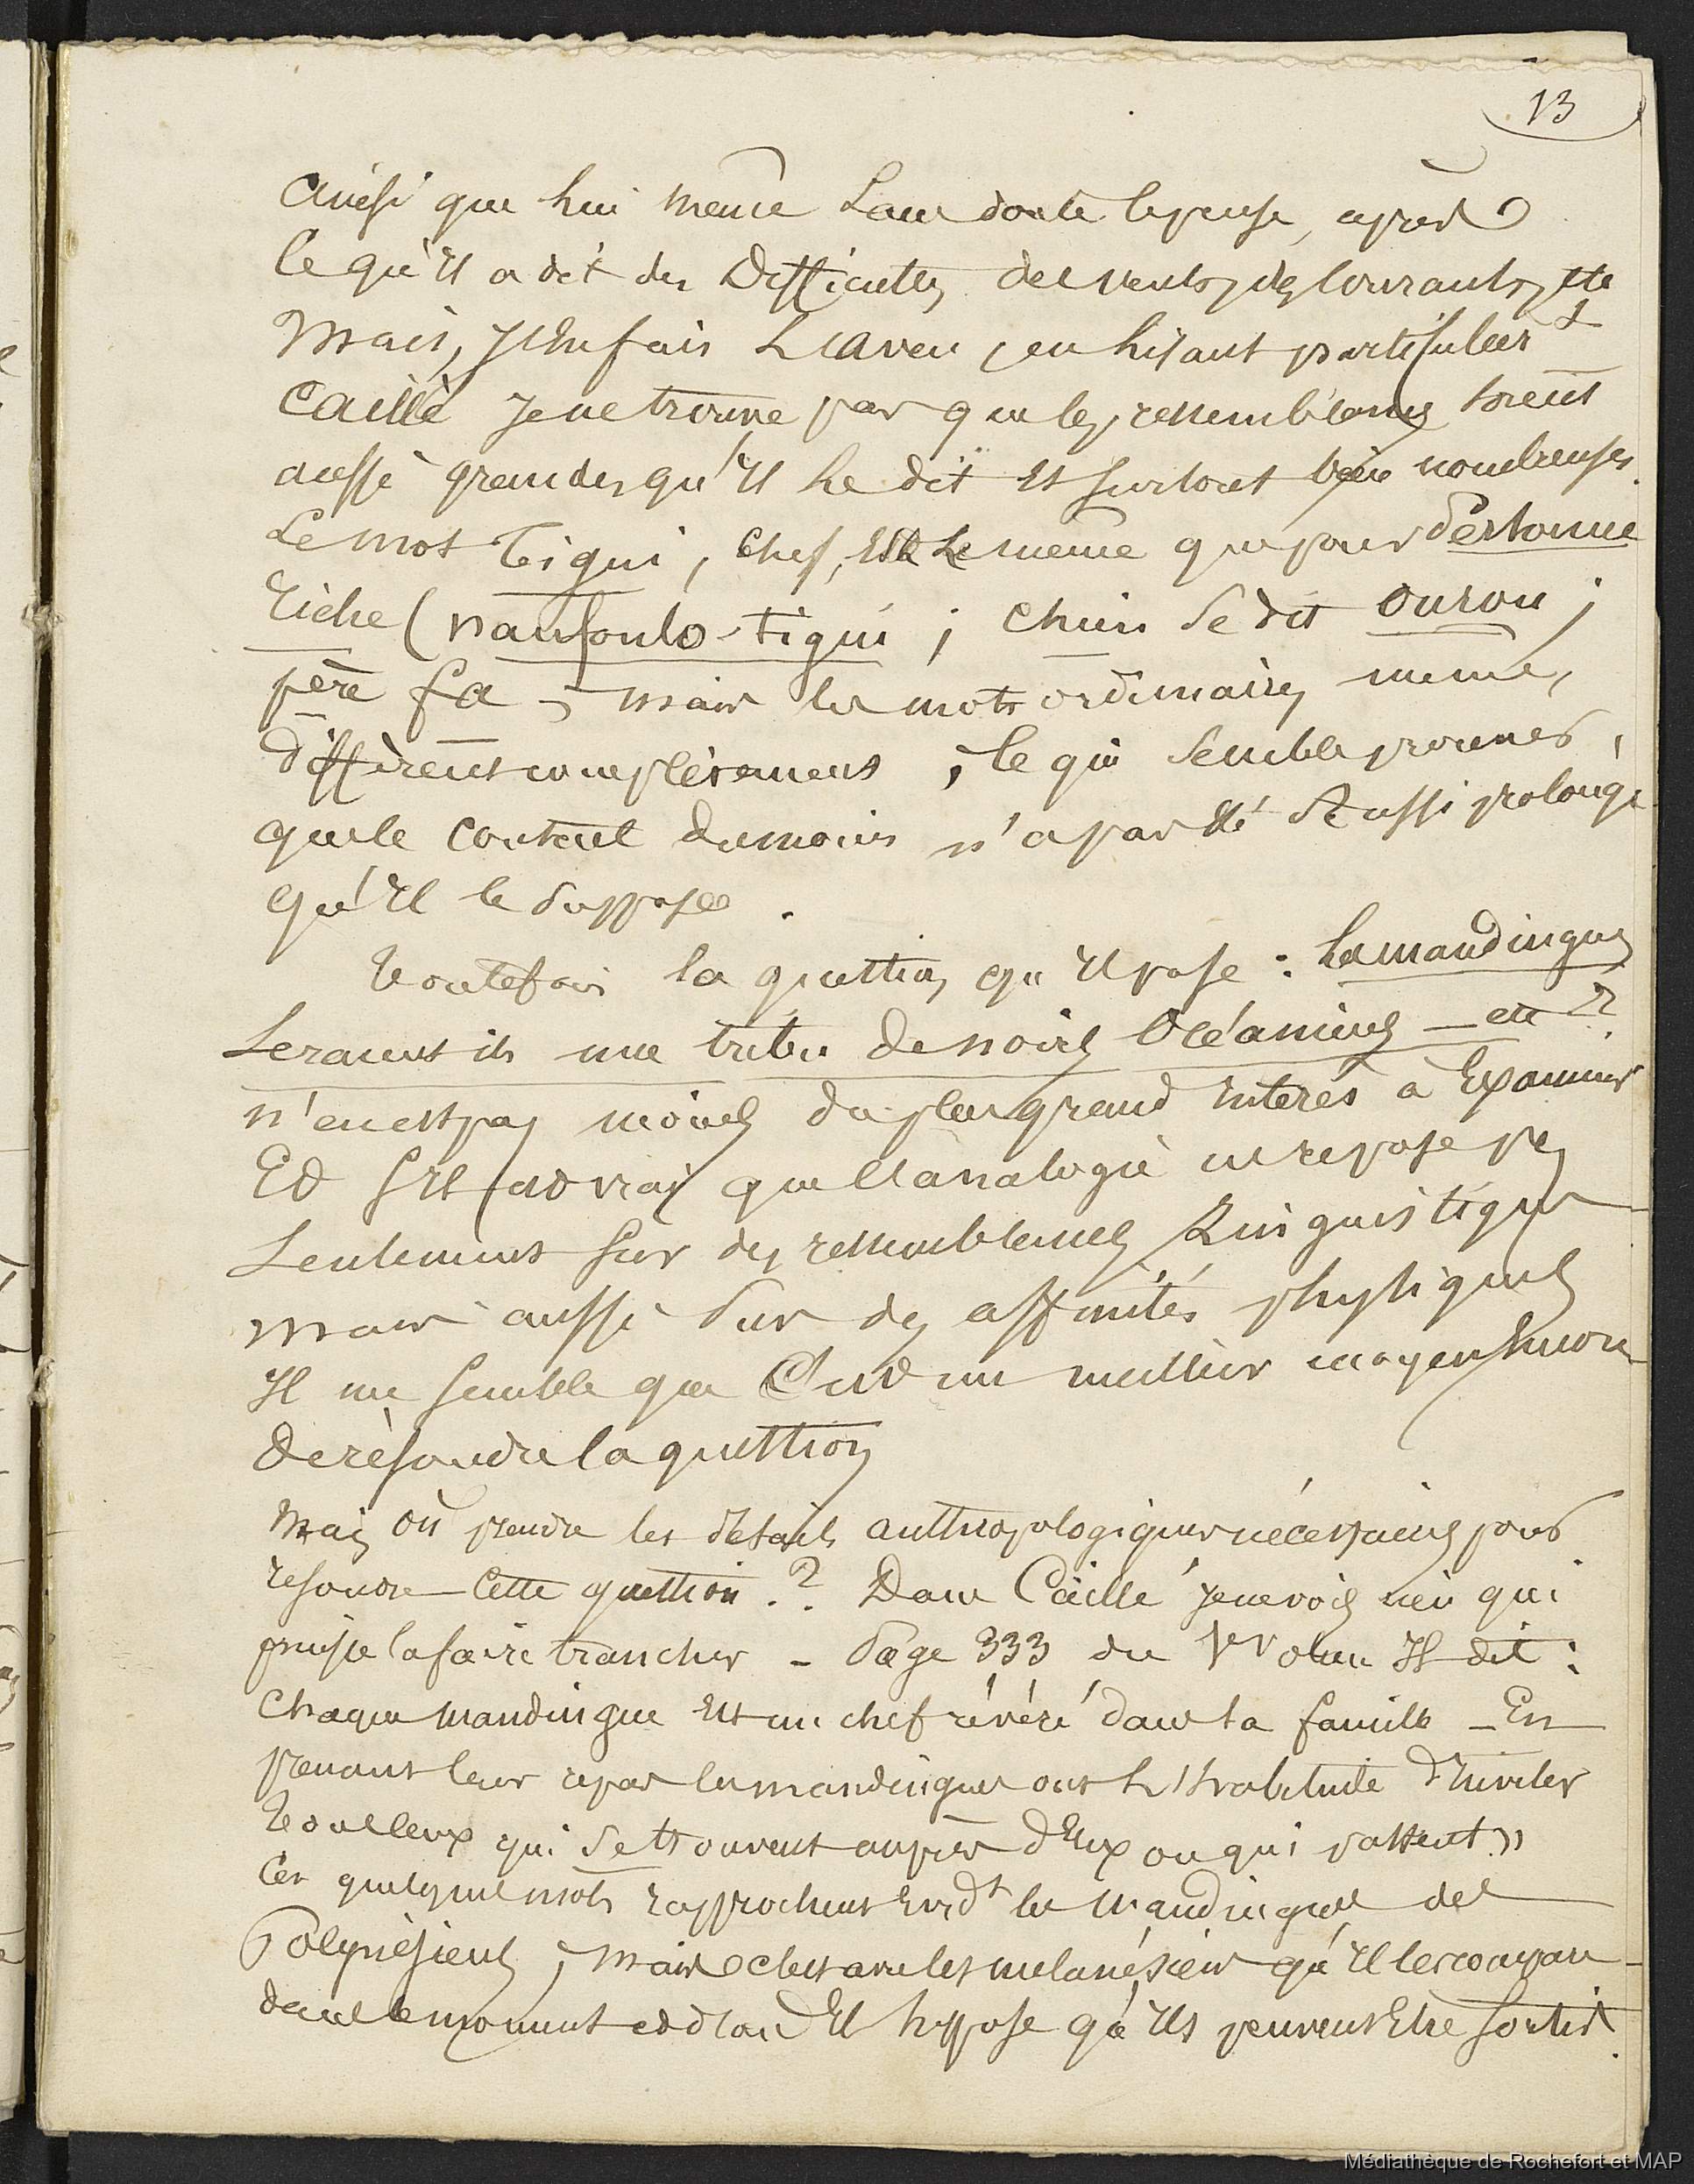 13
ainsi que lui même sans doute le pense, après
ce qu'il a dit des Difficultés des vents, des courants, etc
Mais, j'en fais l'aveu, en lisant particulier^t
Caillé je ne trouve pas que les ressemblances soient
aussi grandes qu'il le dit et surtout bien nombreuses.
Le mot Tigui, chef, est le même que pour Personne
riche (nanfoulo-tigui ; chien se dit ourou ;
père fa ; mais les mots ordinaires même,
diffèrent complètement ; ce qui semble prouver,
que le contact du moins n'a pas été si aussi prolongé
qu'il le suppose.
Toutefois la question qu'il pose : les mandingues
seraient ils une tribu de noirs Océaniens — etc ??
n'en est pas moins du plus grand intérêt à Examiner
Et s'il est vrai que l'analogie ne repose pas
seulement sur des ressemblances Linguistiques
mais aussi sur des affinités physiques
Il me semble que C'est un meilleur moyen encore
de résoudre la question
Mais où prendre les détails anthropologiques nécessaires pour
résoudre cette question ? Dans Caillé je ne vois rien qui
puisse la faire trancher — Page 333 du 1er volume Il dit :
Chaque mandingue est un chef révéré dans sa famille — En
prenant leur repas les mandingues ont l'habitude d'inviter
tous ceux qui se trouvent auprès d'Eux ou qui passent »
Ces quelques mots rapprochent Evid^t les Mandingues des
Polynésiens ; mais c'est avec les mélanésiens qu'il les compare
dans le moment et d'où Il suppose qu'ils peuvent Etre sortis.
Médiathèque de Rochefort et MAP